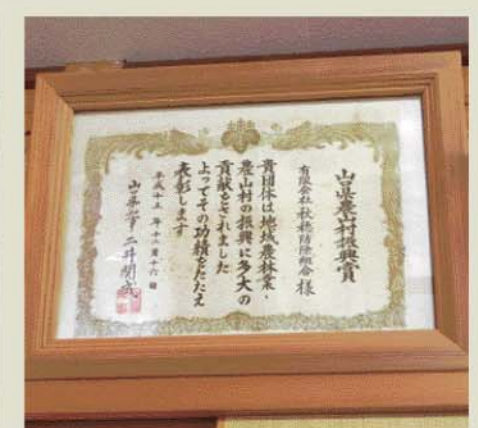 山口県農山村振興賞
有限会社秋穂防除組合 様
貴団体は地域農林業、
農山村の振興に多大の
貢献をされました
よってその功績をたたえ
表彰します
平成十五年十二月十六日
山口県知事 二井関成